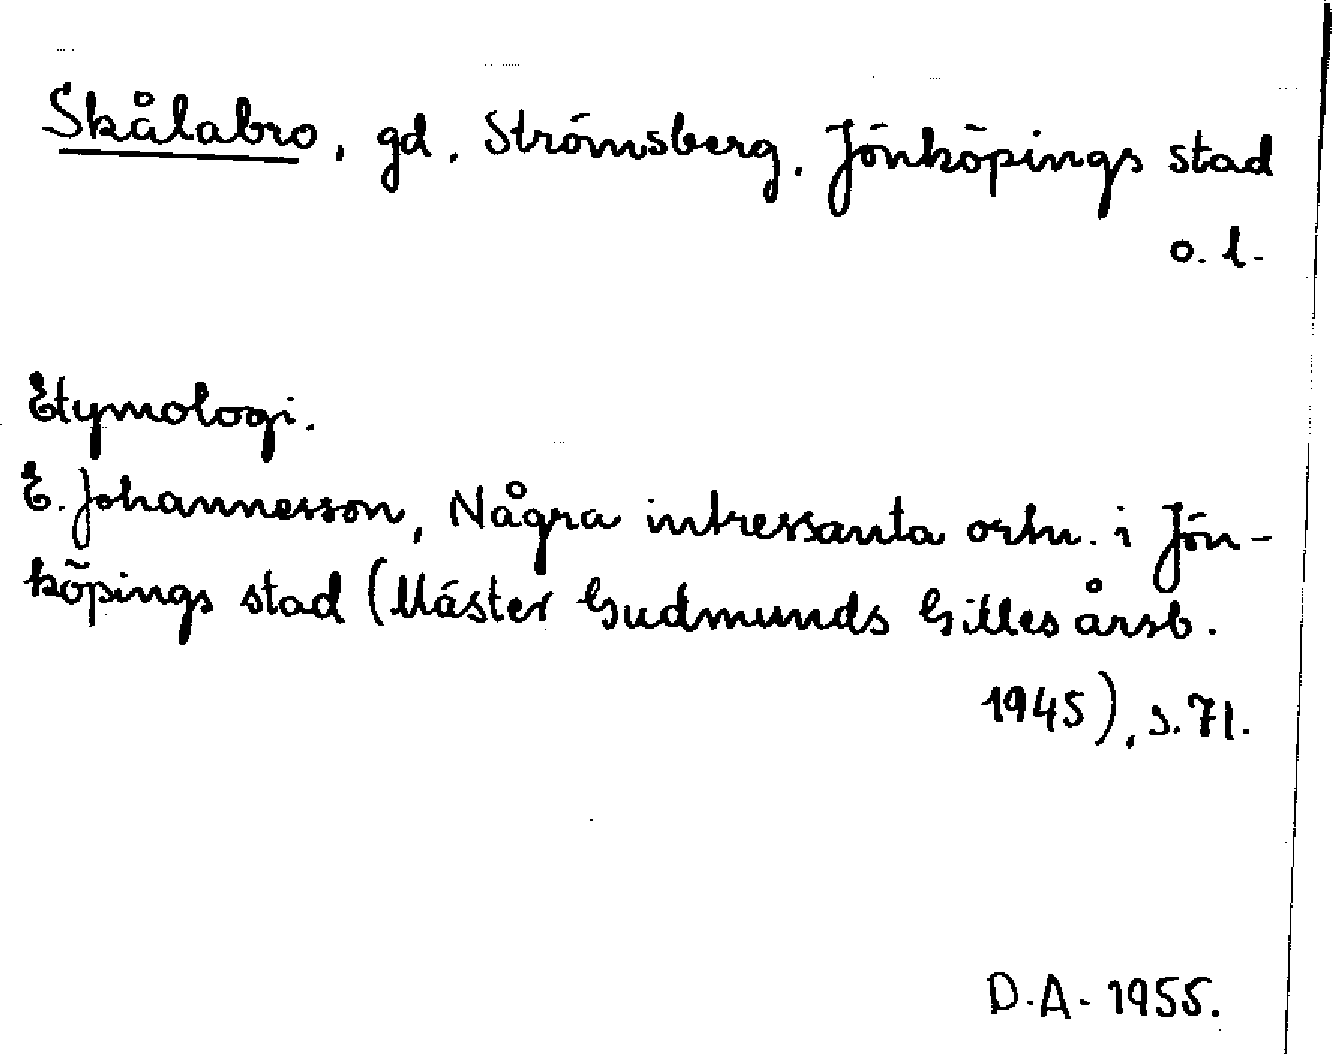 Skålabro, gd, Strömsberg, Jönköpings stad
o. l.
Etymologi.
E. Johannesson, Några intressanta ortn. i Jön-
köpings stad (Mäster Gudmunds Gilles årsb.
1945), s. 71.
D. A. 1955.